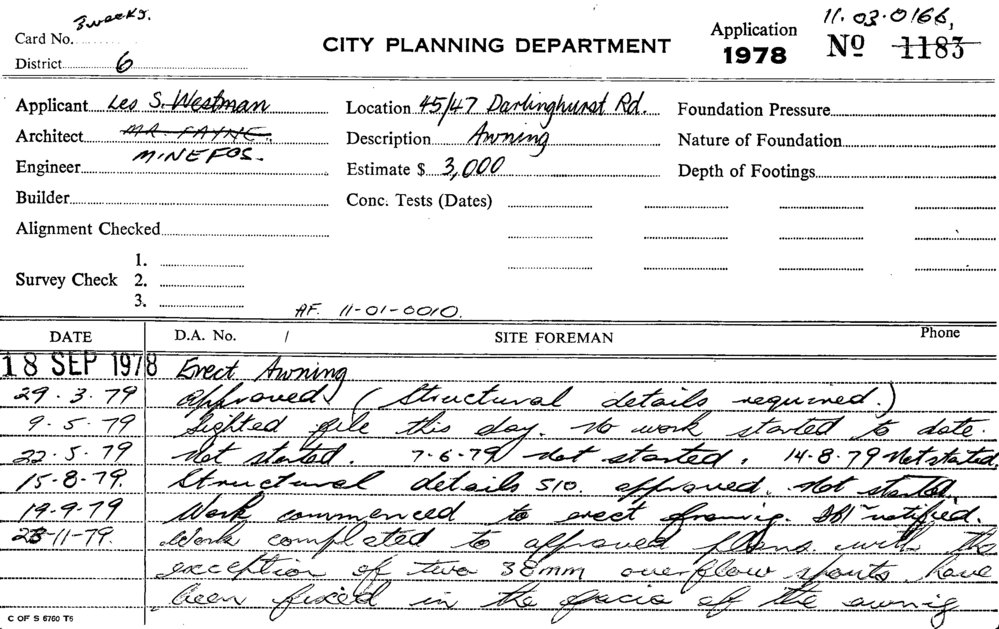 3 weeks.
Card No.
District 6
CITY PLANNING DEPARTMENT
Application
1978
11.03.0166,
No 1183
Applicant Les S. Westman
Architect MR. FAYNE.
Engineer MINEFOS.
Builder
Alignment Checked
Survey Check
1.
2.
3.
Location 45/47 Darlinghurst Rd.
Description Awning
Estimate $ 3,000
Conc. Tests (Dates)
Foundation Pressure
Nature of Foundation
Depth of Footings
AF. 11-01-0010.
DATE D.A. No. / SITE FOREMAN Phone
18 SEP 1978 Erect Awning
29.3.79 approved. (Structural details required.)
9.5.79 Sighted file this day. No work started to date.
22.5.79 Not started. 7-6-79 Not started. 14-8-79 Not started.
15-8-79. Structural details S10. approved. Not started.
19-9-79 Work commenced to erect framig. notified.
23-11-79. Work completed to approved plans with the
exception of two 38mm overflow spouts have
been fixed in the facia of the awnig
C OF S 6760 T6